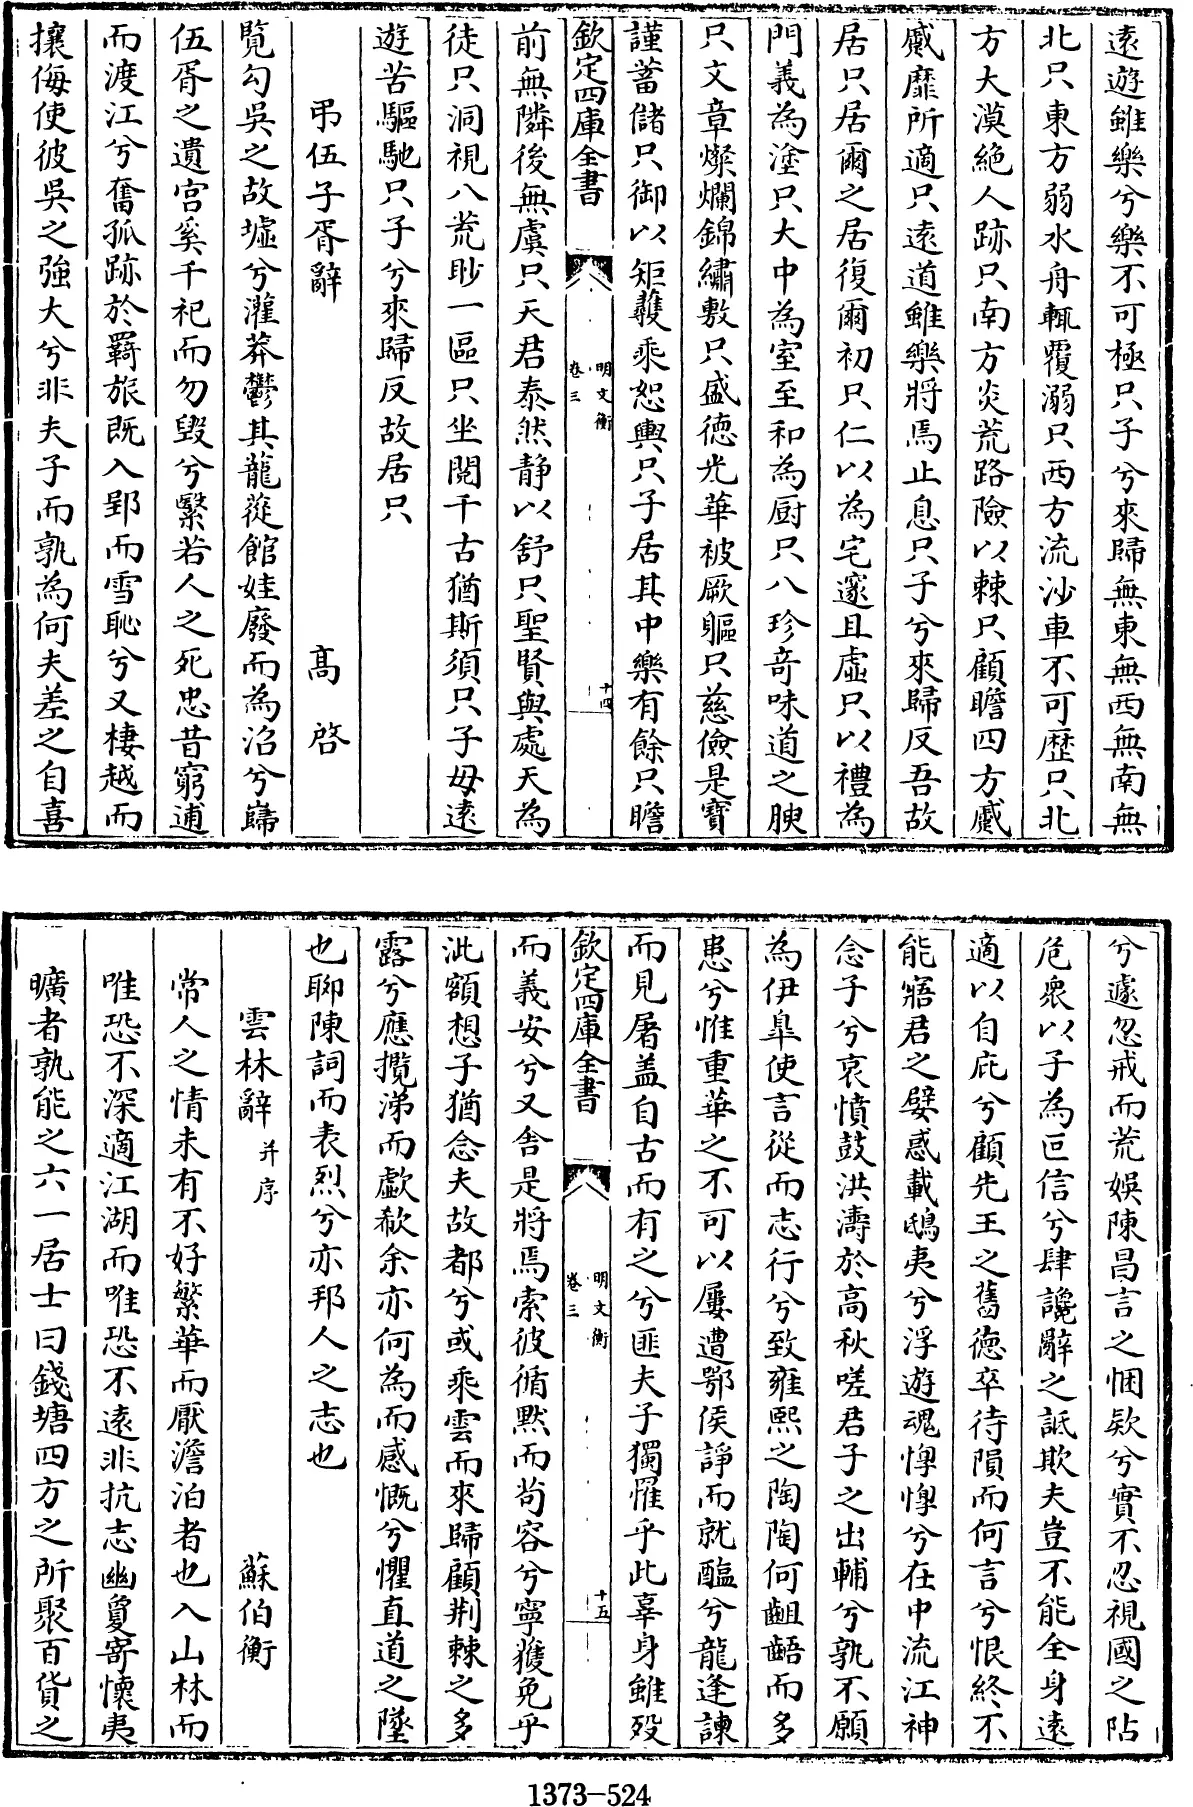 遠遊雖樂兮樂不可極只子兮來歸無東無西無南無
北只東方弱水舟輒覆溺只西方流沙車不可歷只北
方大漠絶人跡只南方炎荒路險以棘只顧瞻四方蹙
蹙靡所適只遠道雖樂將焉止息只子兮來歸反吾故
居只居爾之居復爾初只仁以為宅邃且虛只以禮為
門義為塗只大中為室至和為厨只八珍竒味道之腴
只文章燦爛錦繡敷只盛德光華被厥軀只慈儉是寳
謹蓄儲只御以矩蒦乘恕輿只子居其中樂有餘只瞻
欽定四庫全書
明文衡
卷三
十四
前無隣後無虞只天君泰然静以舒只聖賢與處天為
徒只洞視八荒眇一區只坐閱千古猶斯須只子毋遠
遊苦驅馳只子兮來歸反故居只
弔伍子胥辭 髙啓
覽勾吳之故墟兮灌莽鬱其龍蓯館娃廢而為沼兮歸
伍胥之遺宫奚千祀而勿毁兮繄若人之死忠昔窮逋
而渡江兮奮孤跡於羇旅既入郢而雪恥兮又棲越而
攘侮使彼吳之強大兮非夫子而孰為何夫差之自喜
兮遽忽戒而荒娛陳昌言之悃欵兮實不忍視國之阽
危衆以子為叵信兮肆讒辭之詆欺夫豈不能全身遠
適以自庇兮顧先王之舊德卒待隕而何言兮恨終不
能寤君之嬖惑載鴟夷兮浮遊魂懌懌兮在中流江神
念子兮哀憤鼓洪濤於高秋嗟君子之出輔兮孰不願
為伊臯使言從而志行兮致雍熙之陶陶何齟齬而多
患兮惟重華之不可以屢遭鄂侯諍而就醢兮龍逢諫
而見屠盖自古而有之兮匪夫子獨罹乎此辜身雖殁
欽定四庫全書
明文衡
卷三
十五
而義安兮又舍是將焉索彼循默而茍容兮寧獲免乎
泚額想子猶念夫故都兮或乘雲而來歸顧荆棘之多
露兮應攬涕而歔欷余亦何為而感慨兮懼直道之墜
也聊陳詞而表烈兮亦邦人之志也
雲林辭 并序 蘇伯衡
常人之情未有不好繁華而厭澹泊者也入山林而
唯恐不深適江湖而唯恐不遠非抗志幽夐寄懷夷
曠者孰能之六一居士曰錢塘四方之所聚百貨之
1373-524